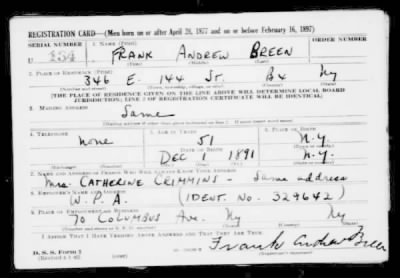 REGISTRATION CARD—(Men born on or after April 28, 1877 and on or before February 16, 1897)
SERIAL NUMBER 1. NAME (Print) ORDER NUMBER
U 154 FRANK ANDREW BREEN
2. PLACE OF RESIDENCE (Print)
346 E. 144 St. Bx NY
(Number and street) (Town, township, village, or city) (County) (State)
[THE PLACE OF RESIDENCE GIVEN ON THE LINE ABOVE WILL DETERMINE LOCAL BOARD
JURISDICTION; LINE 2 OF REGISTRATION CERTIFICATE WILL BE IDENTICAL]
3. MAILING ADDRESS
Same
[Mailing address if other than place indicated on line 2. If same insert word same]
4. TELEPHONE 5. AGE IN YEARS 6. PLACE OF BIRTH
none 51 N.Y.
DATE OF BIRTH
DEC 1 1891 N.Y.
7. NAME AND ADDRESS OF PERSON WHO WILL ALWAYS KNOW YOUR ADDRESS
Mrs. CATHERINE CRIMMINS - Same address
8. EMPLOYER'S NAME AND ADDRESS
W.P.A. (IDENT. NO. 329642)
9. PLACE OF EMPLOYMENT OR BUSINESS
70 COLUMBUS Ave. NY NY
(Number and street or R. F. D. number) (Town) (County) (State)
I AFFIRM THAT I HAVE VERIFIED ABOVE ANSWERS AND THAT THEY ARE TRUE.
D. S. S. Form 1
Frank Andrew Breen